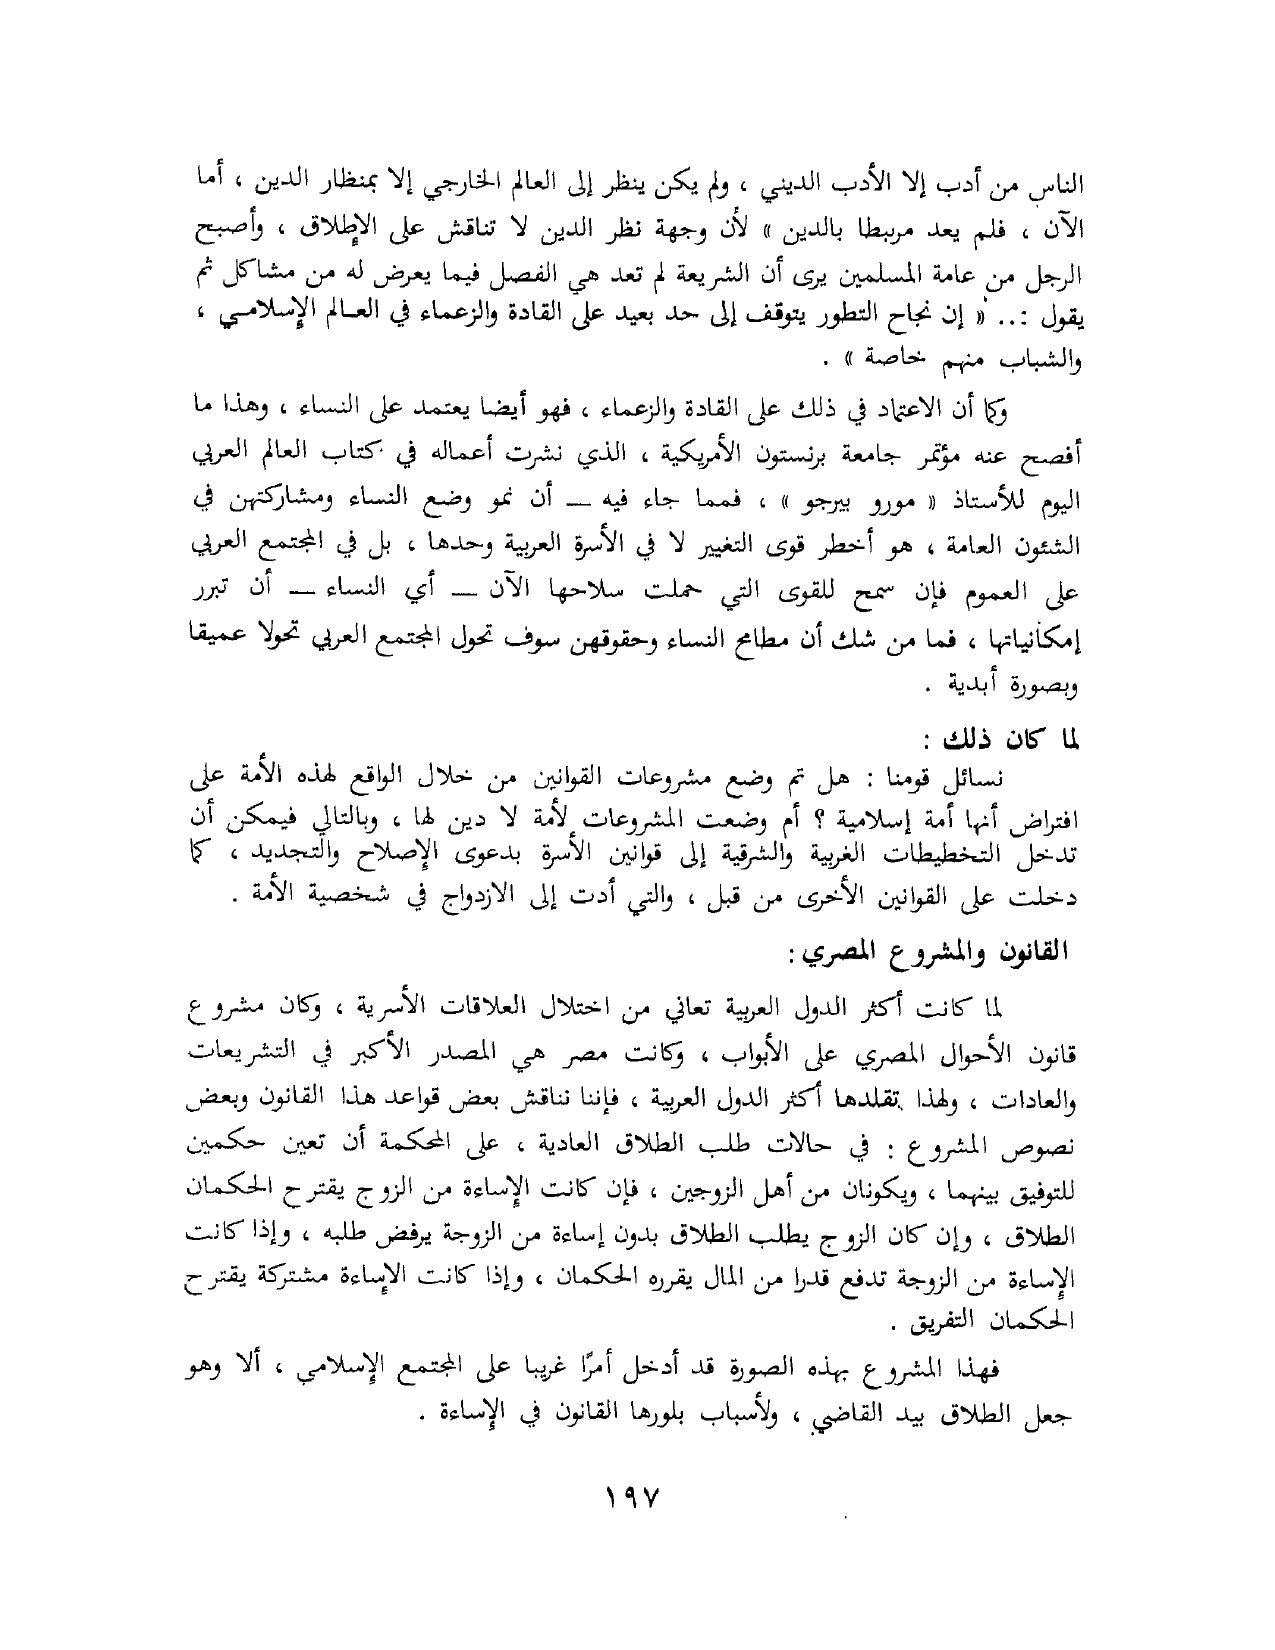 الناس من أدب إلا الأدب الديني ، ولم يكن ينظر إلى العالم الخارجي إلا بمنظار الدين ، أما
الآن ، فلم يعد مربطا بالدين » لأن وجهة نظر الدين لا تناقش على الإطلاق ، وأصبح
الرجل من عامة المسلمين يرى أن الشريعة لم تعد هي الفصل فيما يعرض له من مشاكل ثم
يقول : .. « إن نجاح التطور يتوقف إلى حد بعيد على القادة والزعماء في العالم الإسلامي ،
والشباب منهم خاصة » .
وكما أن الاعتماد في ذلك على القادة والزعماء ، فهو أيضا يعتمد على النساء ، وهذا ما
أفصح عنه مؤتمر جامعة برنستون الأمريكية ، الذي نشرت أعماله في كتاب العالم العربي
اليوم للأستاذ « مورو بيرجو » ، فمما جاء فيه — أن نمو وضع النساء ومشاركتهن في
الشئون العامة ، هو أخطر قوى التغيير لا في الأسرة العربية وحدها ، بل في المجتمع العربي
على العموم فإن سمح للقوى التي حملت سلاحها الآن — أي النساء — أن تبرر
إمكانياتها ، فما من شك أن مطامح النساء وحقوقهن سوف تحول المجتمع العربي تحولا عميقا
وبصورة أبدية .
لما كان ذلك :
نسائل قومنا : هل تم وضع مشروعات القوانين من خلال الواقع لهذه الأمة على
افتراض أنها أمة إسلامية ؟ أم وضعت المشروعات لأمة لا دين لها ، وبالتالي فيمكن أن
تدخل التخطيطات الغربية والشرقية إلى قوانين الأسرة بدعوى الإصلاح والتجديد ، كما
دخلت على القوانين الأخرى من قبل ، والتي أدت إلى الازدواج في شخصية الأمة .
القانون والمشروع المصري :
لما كانت أكثر الدول العربية تعاني من اختلال العلاقات الأسرية ، وكان مشروع
قانون الأحوال المصري على الأبواب ، وكانت مصر هي المصدر الأكبر في التشريعات
والعادات ، ولهذا تقلدها أكثر الدول العربية ، فإننا نناقش بعض قواعد هذا القانون وبعض
نصوص المشروع : في حالات طلب الطلاق العادية ، على المحكمة أن تعين حكمين
للتوفيق بينهما ، ويكونان من أهل الزوجين ، فإن كانت الإساءة من الزوج يقترح الحكمان
الطلاق ، وإن كان الزوج يطلب الطلاق بدون إساءة من الزوجة يرفض طلبه ، وإذا كانت
الإساءة من الزوجة تدفع قدرا من المال يقرره الحكمان ، وإذا كانت الإساءة مشتركة يقترح
الحكمان التفريق .
فهذا المشروع بهذه الصورة قد أدخل أمرًا غريبا على المجتمع الإسلامي ، ألا وهو
جعل الطلاق بيد القاضي ، ولأسباب بلورها القانون في الإساءة .
١٩٧